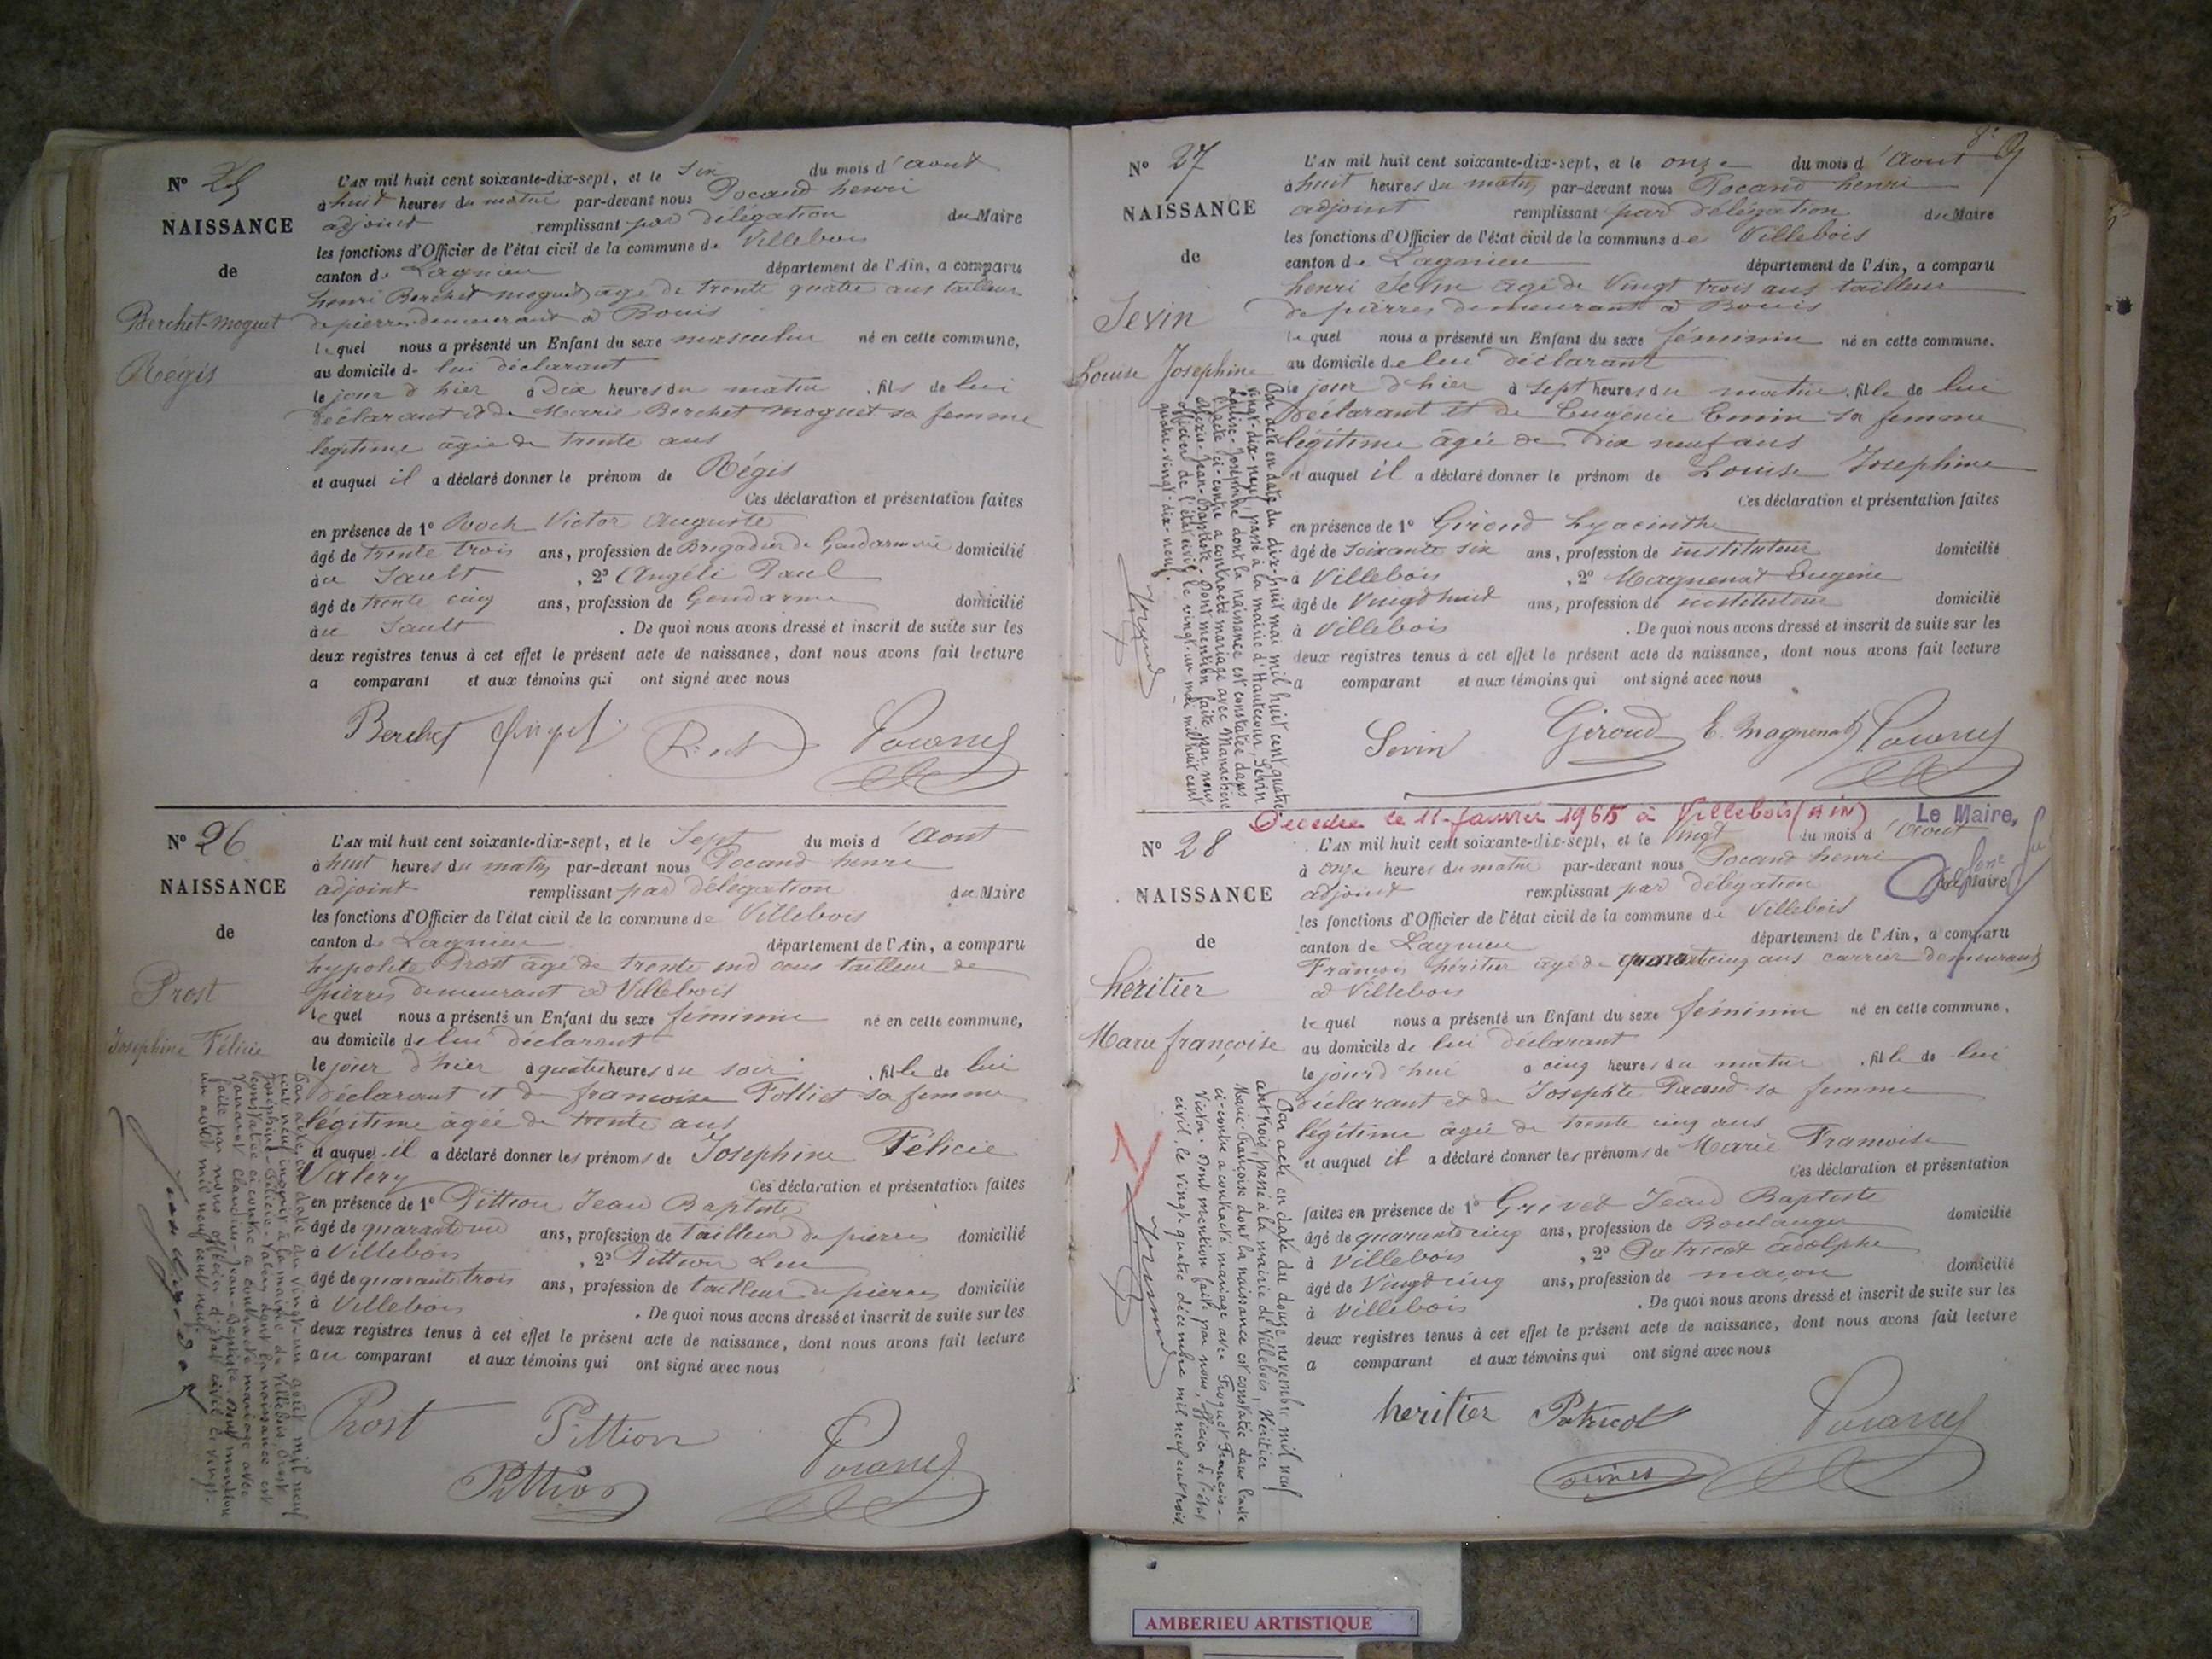 Nº 25
NAISSANCE
de
Berchet-moguet
Régis
L'AN mil huit cent soixante-dix-sept, et le Six du mois d'Aout
à huit heures du matin par-devant nous Pocand henri
adjoint remplissant par délégation du Maire
les fonctions d'Officier de l'état civil de la commune de Villebois
canton de Lagnieu département de l'Ain, a comparu
henri Berchet moguet agé de trente quatre ans tailleur
de pierres demeurant à Bouis
lequel nous a présenté un Enfant du sexe masculin né en cette commune,
au domicile de lui déclarant
le jour d'hier à Dix heures du matin , fils de lui
déclarant et de Marie Berchet moguet sa femme
légitime âgée de trente ans
et auquel il a déclaré donner le prénom de Régis
Ces déclaration et présentation faites
en présence de 1º Roch Victor Auguste
âgé de trente trois ans, profession de Brigadier de Gendarmerie domicilié
au Sault , 2º Angéli Paul
âgé de trente cinq ans, profession de Gendarme domicilié
au Sault . De quoi nous avons dressé et inscrit de suite sur les
deux registres tenus à cet effet le présent acte de naissance, dont nous avons fait lecture
a comparant et aux témoins qui ont signé avec nous
Berchet
Nº 26
NAISSANCE
de
Prost
Josephine Félicie
L'AN mil huit cent soixante-dix-sept, et le Sept du mois d'Aout
à huit heures du matin par-devant nous Pocand henri
adjoint remplissant par délégation du Maire
les fonctions d'Officier de l'état civil de la commune de Villebois
canton de Lagnieu département de l'Ain, a comparu
hypolite Prost âgé de trente ans tailleur de
pierres demeurant à Villebois
lequel nous a présenté un Enfant du sexe féminin né en cette commune,
au domicile de lui déclarant
le jour d'hier à quatre heures du soir , fille de lui
déclarant et de francoise Folliet sa femme
légitime âgée de trente ans
et auquel il a déclaré donner les prénoms de Josephine Félicie
Valery
Ces déclaration et présentation faites
en présence de 1º Pittion Jean Baptiste
âgé de quarante ans, profession de Tailleur de pierres domicilié
à Villebois , 2º Pittion Luc
âgé de quarante trois ans, profession de tailleur de pierres domicilié
à Villebois . De quoi nous avons dressé et inscrit de suite sur les
deux registres tenus à cet effet le présent acte de naissance, dont nous avons fait lecture
au comparant et aux témoins qui ont signé avec nous
Prost Pittion
Pittion
Par acte en date du vingt-un août mil neuf
cent neuf inscrit à la mairie de Villebois, Prost
Joséphine-Félicie-Valery dont la naissance est
constatée ci-contre a contracté mariage avec
Claudius-Jean-Baptiste. Dont mention
faite par nous officier d'état civil le vingt-
un août mil neuf cent neuf.
Nº 27
NAISSANCE
de
Sevin
Louise Josephine
L'AN mil huit cent soixante-dix-sept, et le onze du mois d'Aout
à huit heures du matin par-devant nous Pocand henri
adjoint remplissant par délégation du Maire
les fonctions d'Officier de l'état civil de la commune de Villebois
canton de Lagnieu département de l'Ain, a comparu
henri Sevin agé de Vingt trois ans tailleur
de pierres demeurant à Bouis
lequel nous a présenté un Enfant du sexe féminin né en cette commune,
au domicile de lui déclarant
le jour d'hier à sept heures du matin , fille de lui
Déclarant et de Eugénie sa femme
légitime âgée de Dix neuf ans
et auquel il a déclaré donner le prénom de Louise Josephine
Ces déclaration et présentation faites
en présence de 1º Giroud hyacinthe
âgé de soixante six ans, profession de instituteur domicilié
à Villebois , 2º Magnenat Eugène
âgé de Vingt huit ans, profession de instituteur domicilié
à Villebois . De quoi nous avons dressé et inscrit de suite sur les
deux registres tenus à cet effet le présent acte de naissance, dont nous avons fait lecture
a comparant et aux témoins qui ont signé avec nous
Sevin Giroud E. Magnenat
Par acte en date du dix-huit mai mil huit cent quatre-
vingt-dix-neuf, passé à la mairie d'Hautecour, Sevin
Louise-Joséphine dont la naissance est constatée dans
l'acte ci-contre a contracté mariage avec
Jean-Baptiste. Dont mention faite par nous
officier de l'état civil, le vingt-un mai mil huit cent
quatre-vingt-dix-neuf.
Decedee le 11 janvier 1965 à Villebois (AIN)
Le Maire,
Nº 28
NAISSANCE
de
héritier
Marie françoise
L'AN mil huit cent soixante-dix-sept, et le Vingt du mois d'Aout
à onze heures du matin par-devant nous Pocand henri
adjoint remplissant par délégation du Maire
les fonctions d'Officier de l'état civil de la commune de Villebois
canton de Lagnieu département de l'Ain, a comparu
François héritier agé de quarante cinq ans carrier demeurant
à Villebois
lequel nous a présenté un Enfant du sexe féminin né en cette commune,
au domicile de lui déclarant
le jourd'hui à cinq heures du matin , fille de lui
déclarant et de Josephte Pocand sa femme
légitime âgée de trente cinq ans
et auquel il a déclaré donner les prénoms de Marie Francoise
Ces déclaration et présentation
faites en présence de 1º Grivet Jean Baptiste
âgé de quarante cinq ans, profession de Boulanger domicilié
à Villebois , 2º Patricot Adolphe
âgé de Vingt cinq ans, profession de maçon domicilié
à Villebois . De quoi nous avons dressé et inscrit de suite sur les
deux registres tenus à cet effet le présent acte de naissance, dont nous avons fait lecture
a comparant et aux témoins qui ont signé avec nous
heritier Patricot
Par acte en date du douze novembre mil neuf
cent trois, passé à la mairie de Villebois, Héritier
Marie-Françoise dont la naissance est constatée dans l'acte
ci-contre a contracté mariage avec Troquet François-
Victor. Dont mention faite par nous, officier de l'état
civil, le vingt-quatre décembre mil neuf cent trois.
AMBERIEU ARTISTIQUE